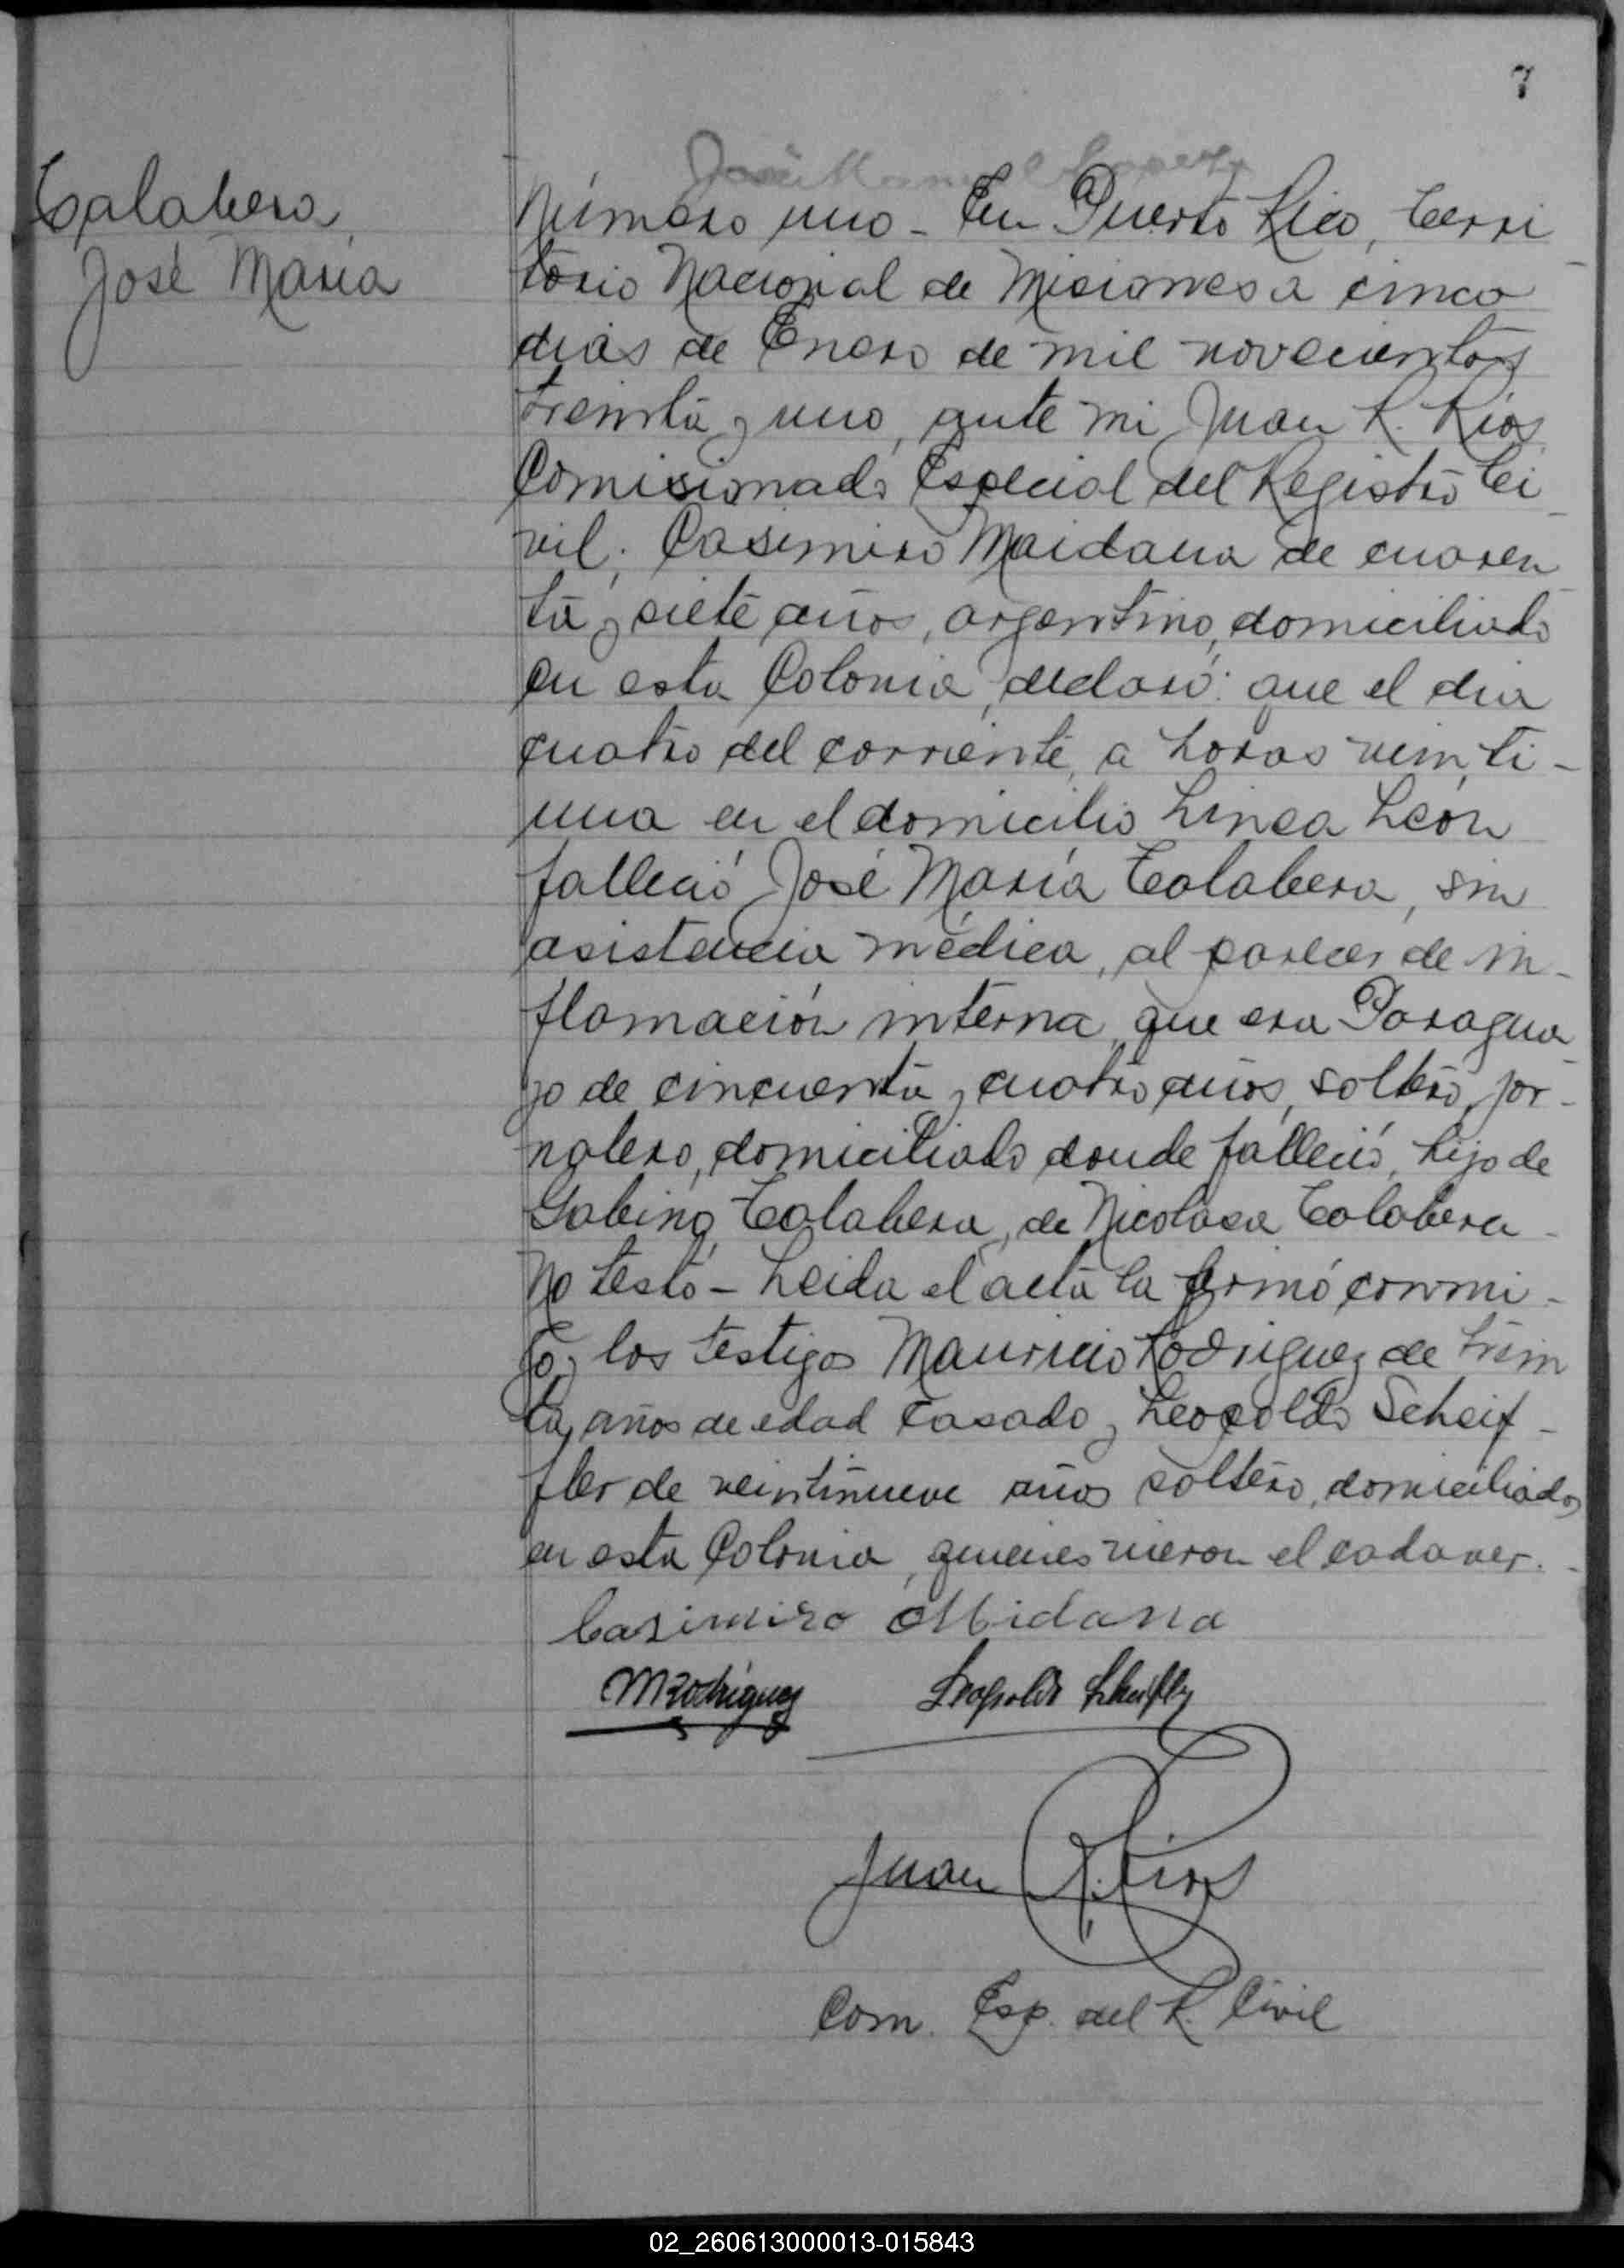 7
Talabera,
José María
José Manuel
Número uno - En Puerto Rico, Terri
torio Nacional de Misiones a cinco
dias de Enero de mil novecientos
treinta y uno, ante mi Juan R. Rios
Comisionado Especial del Registro Ci
vil; Casimiro Maidana de cuaren
ta y siete años, argentino, domiciliado
en esta Colonia, declaró: que el dia
cuatro del corriente, a horas veinti-
una en el domicilio Linea León
falleció José María Talabera, sin
asistencia médica, al parecer de in-
flamación interna, que era Paragua
yo de cincuenta y cuatro años, soltero, jor-
nalero, domiciliado donde falleció, hijo de
Gabino Talabera, de Nicolasa Talabera -
No testó - Leida el acta la firmó conmi-
go y los testigos Mauricio Rodriguez de trein
ta años de edad casado y Leopoldo Scheif-
fler de veintinueve años soltero, domiciliados
en esta Colonia, quienes vieron el cadaver. -
Casimiro Midana
MRodriguez Leopoldo Scheifler
Juan R. Rios
Com. Esp. del R. Civil
02_260613000013-015843